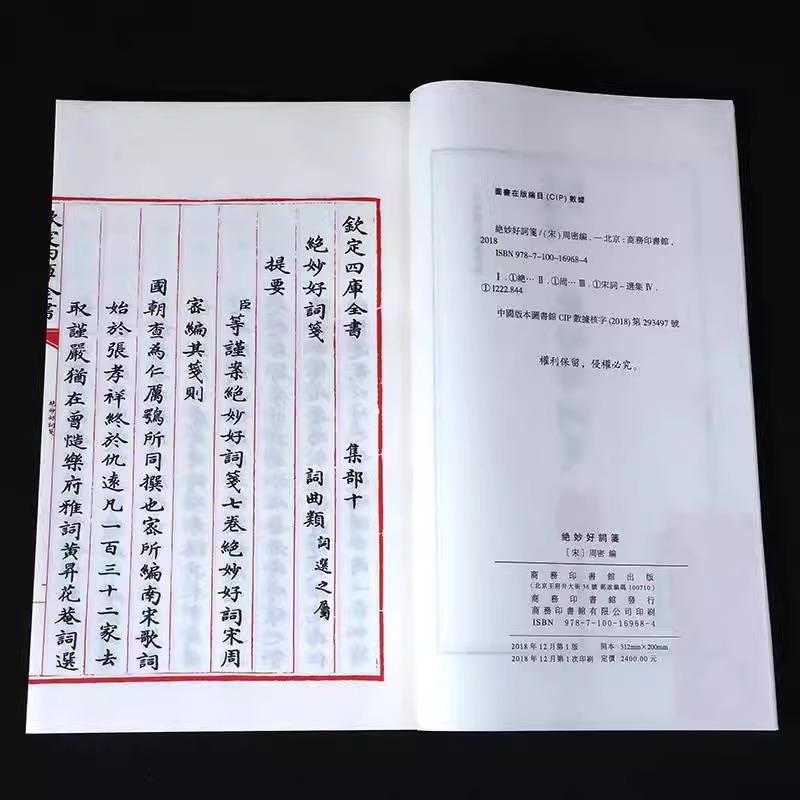 圖書在版編目(CIP)數據
絕妙好詞箋/(宋)周密編.—北京:商務印書館,
2018
ISBN 978-7-100-16968-4
Ⅰ.①絕… Ⅱ.①周… Ⅲ.①宋詞－選集 Ⅳ.
①I222.844
中國版本圖書館CIP數據核字(2018)第293497號
權利保留,侵權必究。
絕妙好詞箋
[宋]周密 編
商務印書館出版
(北京王府井大街36號 郵政編碼100710)
商務印書館發行
商務印書館有限公司印刷
ISBN 978-7-100-16968-4
2018年12月第1版 開本 312mm×200mm
2018年12月第1次印刷 定價 2400.00元
欽定四庫全書 集部十
絕妙好詞箋 詞曲類 詞選之屬
提要
臣等謹案絕妙好詞箋七卷絕妙好詞宋周
密編其箋則
國朝查為仁厲鶚所同撰也密所編南宋歌詞
始於張孝祥終於仇遠凡一百三十二家去
取謹嚴猶在曾慥樂府雅詞黃昇花菴詞選
欽定四庫全書
絕妙好詞箋